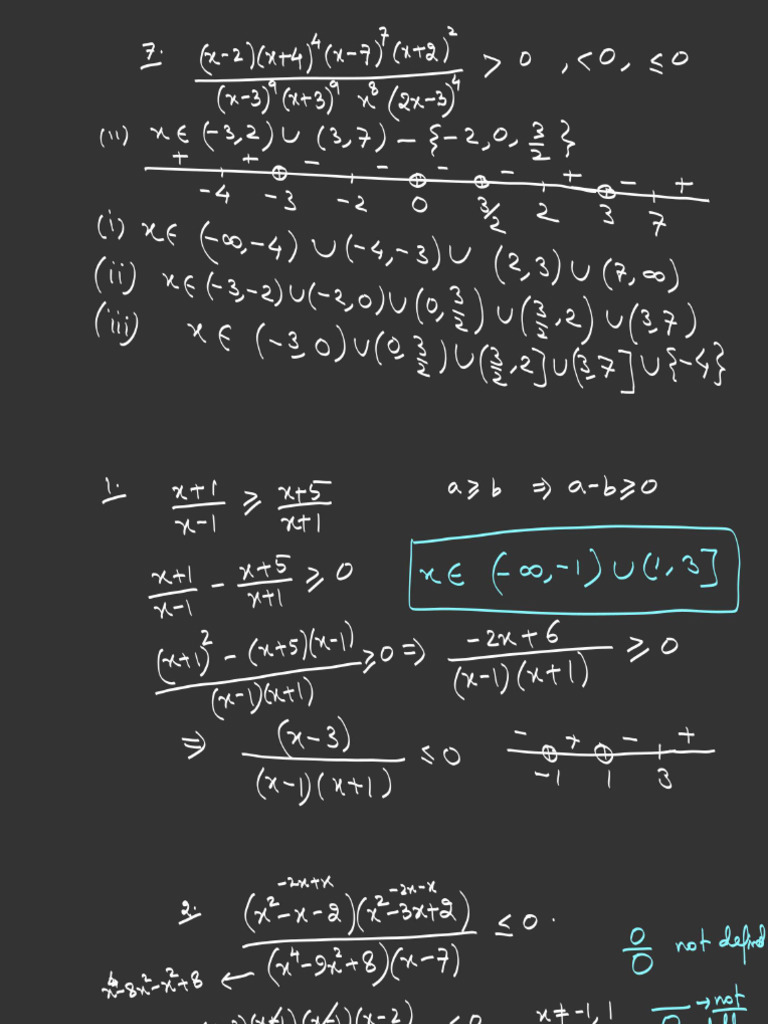 7. (x-2)(x+4)^4(x-7)^7(x+2)^2 / (x-3)^9(x+3)^9 x^8(2x-3)^4 > 0 , <0, ≤0
(ii) x∈(-3,2)∪(3,7)-{-2,0,3/2}
+ + - - - - + - +
-4 -3 -2 0 3/2 2 3 7
(i) x∈ (-∞,-4)∪(-4,-3)∪ (2,3)∪(7,∞)
(ii) x∈(-3,-2)∪(-2,0)∪(0,3/2)∪(3/2,2)∪(3,7)
(iii) x∈ (-3,0)∪(0,3/2)∪(3/2,2]∪(3,7]∪{-4}
1. x+1/x-1 ≥ x+5/x+1 a≥b ⇒ a-b≥0
x+1/x-1 - x+5/x+1 ≥ 0 x∈ (-∞,-1)∪(1,3]
(x+1)^2-(x+5)(x-1)/(x-1)(x+1) ≥0⇒ -2x+6/(x-1)(x+1) ≥ 0
⇒ (x-3)/(x-1)(x+1) ≤0 - + - +
-1 1 3
-2x+x -2x-x
2. (x^2-x-2)(x^2-3x+2)/(x^4-9x^2+8)(x-7) ≤ 0.
0/0 not defined
x^4-8x^2-x^2+8 ←
x≠-1,1 → not